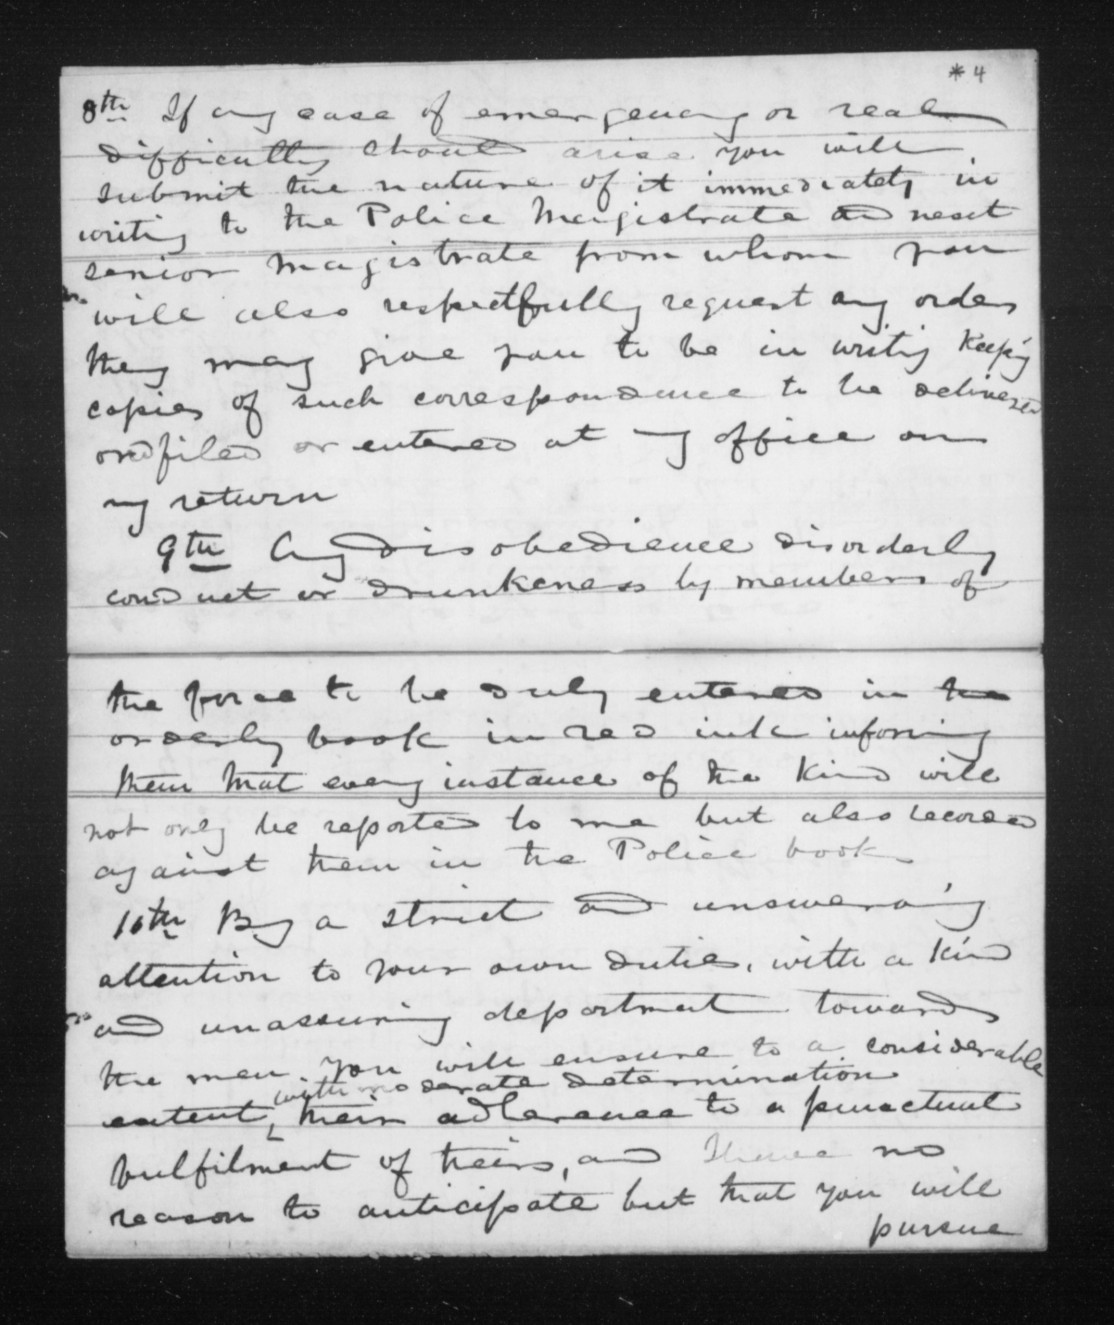 * 4
8th If any case of emergency or real
difficulty should arise you will
submit the nature of it immediately in
writing to the Police Magistrate and next
senior Magistrate from whom you
will also respectfully request any orders
they may give you to be in writing Keeping
copies of such correspondence to be delivered
and filed or entered at my office on
my return
9th Any disobedience disorderly
conduct or drunkeness by members of
the force to be duly entered in the
orderly book in red ink informing
them that every instance of the Kind will
not only be reported to me but also recorded
against them in the Police book
10th By a strict and unswerving
attention to your own duties, with a Kind
and unassuming deportment towards
the men you will ensure to a considerable
with moderate determination
extent, their adherence to a punctual
fulfilment of theirs, and I have no
reason to anticipate but that you will
pursue